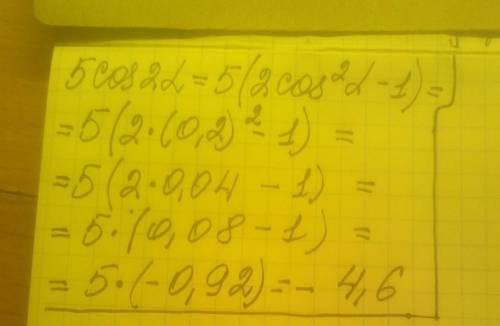 5cos2α = 5(2cos²α - 1) =
= 5(2·(0,2)² - 1) =
= 5(2·0,04 - 1) =
= 5·(0,08 - 1) =
= 5·(-0,92) = - 4,6